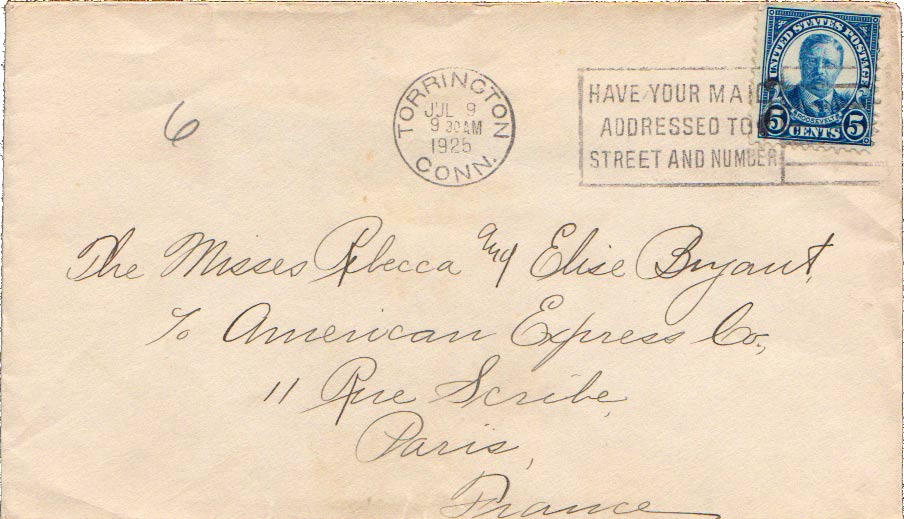 UNITED STATES POSTAGE
ROOSEVELT
5 CENTS 5
TORRINGTON
JUL 9
9 30 AM
1925
CONN.
HAVE YOUR MAIL
ADDRESSED TO
STREET AND NUMBER
6
The Misses Rebecca and Elise Bryant,
℅ American Express Co.,
11 Rue Scribe,
Paris,
France